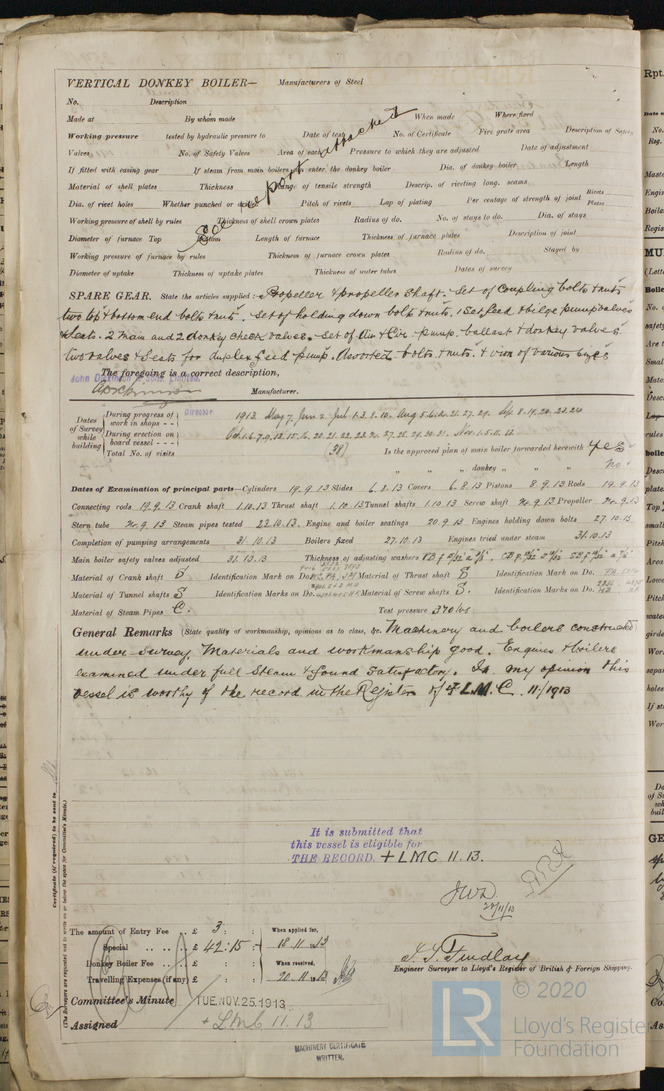 VERTICAL DONKEY BOILER— Manufacturers of Steel
No. Description
Made at By whom made When made Where fixed
Working pressure tested by hydraulic pressure to Date of test No. of Certificate Fire grate area Description of Safety
Valves No. of Safety Valves Area of each Pressure to which they are adjusted Date of adjustment
If fitted with easing gear If steam from main boilers can enter the donkey boiler Dia. of donkey boiler Length
Material of shell plates Thickness Range of tensile strength Descrip. of riveting long. seams
Dia. of rivet holes Whether punched or drilled Pitch of rivets Lap of plating Per centage of strength of joint Rivets Plates
Working pressure of shell by rules Thickness of shell crown plates Radius of do. No. of stays to do. Dia. of stays
Diameter of furnace Top Bottom Length of furnace Thickness of furnace plates Description of joint
Working pressure of furnace by rules Thickness of furnace crown plates Radius of do. Stayed by
Diameter of uptake Thickness of uptake plates Thickness of water tubes Dates of survey
See report attached
SPARE GEAR. State the articles supplied:— Propeller & propeller shaft. Set of Coupling bolts & nuts
two top & bottom end bolts & nuts. Set of holding down bolts & nuts. 1 Set feed & bilge pump valves
& Seats. 2 Main and 2 donkey check valves. Set of Air & Cir. pump. ballast & donkey valves
two valves & Seats for duplex feed pump. Assorted bolts & nuts. & iron of various sizes
The foregoing is a correct description,
John Dickinson & Sons, Limited.
Director Manufacturer.
Dates of Survey while building
During progress of work in shops - - 1913. May 7. June 2. Jul 1.3.8.10. Aug 5.6.12.21.27.29. Sep. 8.19.20.23.24
During erection on board vessel - - - Oct. 1.6.7.9.12.15.16.20.21.22.23.24.27.28.29.30.31. Nov. 1.5.11.12
Total No. of visits (38) Is the approved plan of main boiler forwarded herewith yes
" " " donkey " " " no
Dates of Examination of principal parts—Cylinders 19.9.13 Slides 6.8.13 Covers 6.8.13 Pistons 8.9.13 Rods 19.9.13
Connecting rods 19.9.13 Crank shaft 1.10.13 Thrust shaft 1.10.13 Tunnel shafts 1.10.13 Screw shaft 24.9.13 Propeller 24.9.13
Stern tube 24.9.13 Steam pipes tested 22.10.13 Engine and boiler seatings 20.9.13 Engines holding down bolts 27.10.13
Completion of pumping arrangements 31.10.13 Boilers fixed 27.10.13 Engines tried under steam 31.10.13
Main boiler safety valves adjusted 31.10.13 Thickness of adjusting washers
Material of Crank shaft S Identification Mark on Do. Material of Thrust shaft S Identification Mark on Do.
Material of Tunnel shafts S Identification Marks on Do. Material of Screw shafts S. Identification Marks on Do.
Material of Steam Pipes C. Test pressure 370 lbs
General Remarks (State quality of workmanship, opinions as to class, &c. Machinery and boilers constructed
under survey. Materials and workmanship good. Engines & boilers
examined under full Steam & found Satisfactory. In my opinion this
vessel is worthy of the record in the Register of + L.M.C. 11/1913
Certificate (if required) to be sent to
(The Surveyors are requested not to write on or below the space for Committee's Minute.)
It is submitted that
this vessel is eligible for
THE RECORD. + LMC 11.13.
The amount of Entry Fee .. £ 3 : : When applied for,
Special .. .. £ 42:15: 18.11.13
Donkey Boiler Fee .. £ : : When received,
Travelling Expenses (if any) £ : : 20.11.13
Engineer Surveyor to Lloyd's Register of British & Foreign Shipping.
Committee's Minute TUE. NOV. 25. 1913
Assigned + LMC 11.13
MACHINERY CERTIFICATE
WRITTEN.
LR © 2020
Lloyd's Register
Foundation